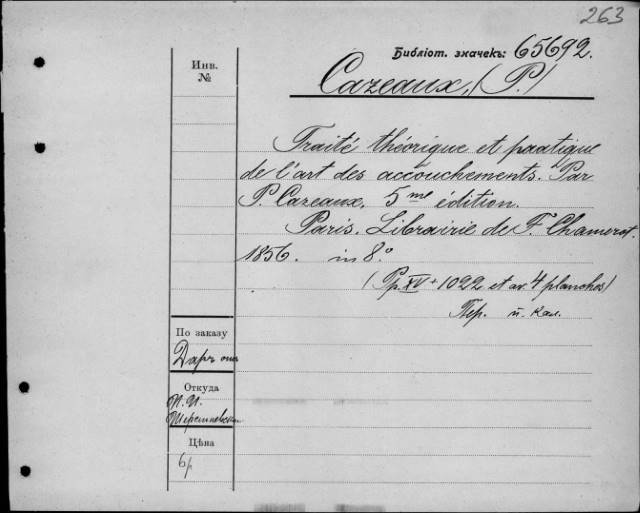 263
Библіот. значекъ: 65692.
Инв.
№
Cazeaux, (P.)
Traité théorique et pratique
de l'art des accouchements. Par
P. Cazeaux. 5me édition.
Paris. Librairie de F. Chamerot.
1856. in 8.°
(Pp. XV + 1022 et av. 4 planches)
Пер. й. кал.
По заказу
Даръ
Откуда
Цѣна
6р